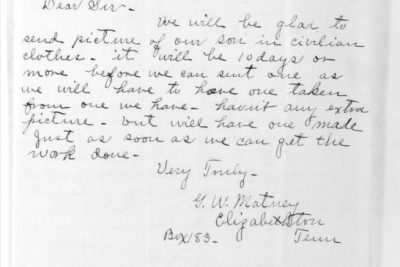 Dear Sir-
We will be glad to
send picture of our son in civilian
clothes- it will be 10 days or
more before we can sent one as
we will have to have one taken
from one we have- havint any extra
picture- but will have one made
Just as soon as we can get the
work done-
Very Truly-
G. W. Matney
Elizabethton
Box 183- Tenn